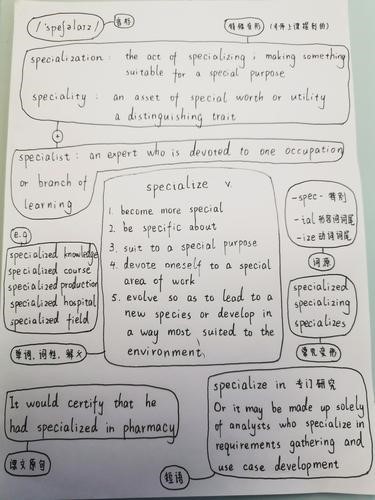 /ˈspeʃəlaɪz/
音标
特殊变形 (课件上课提到的)
specialization : the act of specializing ; making something
suitable for a special purpose
speciality : an asset of special worth or utility
a distinguishing trait
+
specialist : an expert who is devoted to one occupation
or branch of
learning
specialize v.
1. become more special
2. be specific about
3. suit to a special purpose
4. devote oneself to a special
area of work
5. evolve so as to lead to a
new species or develop in
a way most suited to the
environment
e.g
specialized knowledge
specialized course
specialized production
specialized hospital
specialized field
单词,词性,解义
-spec- 特别
-ial 形容词词尾
-ize 动词词尾
词源
specialized
specializing
specializes
常见变形
It would certify that he
had specialized in pharmacy
课文原句
specialize in 专门研究
Or it may be made up solely
of analysts who specialize in
requirements gathering and
use case development
短语